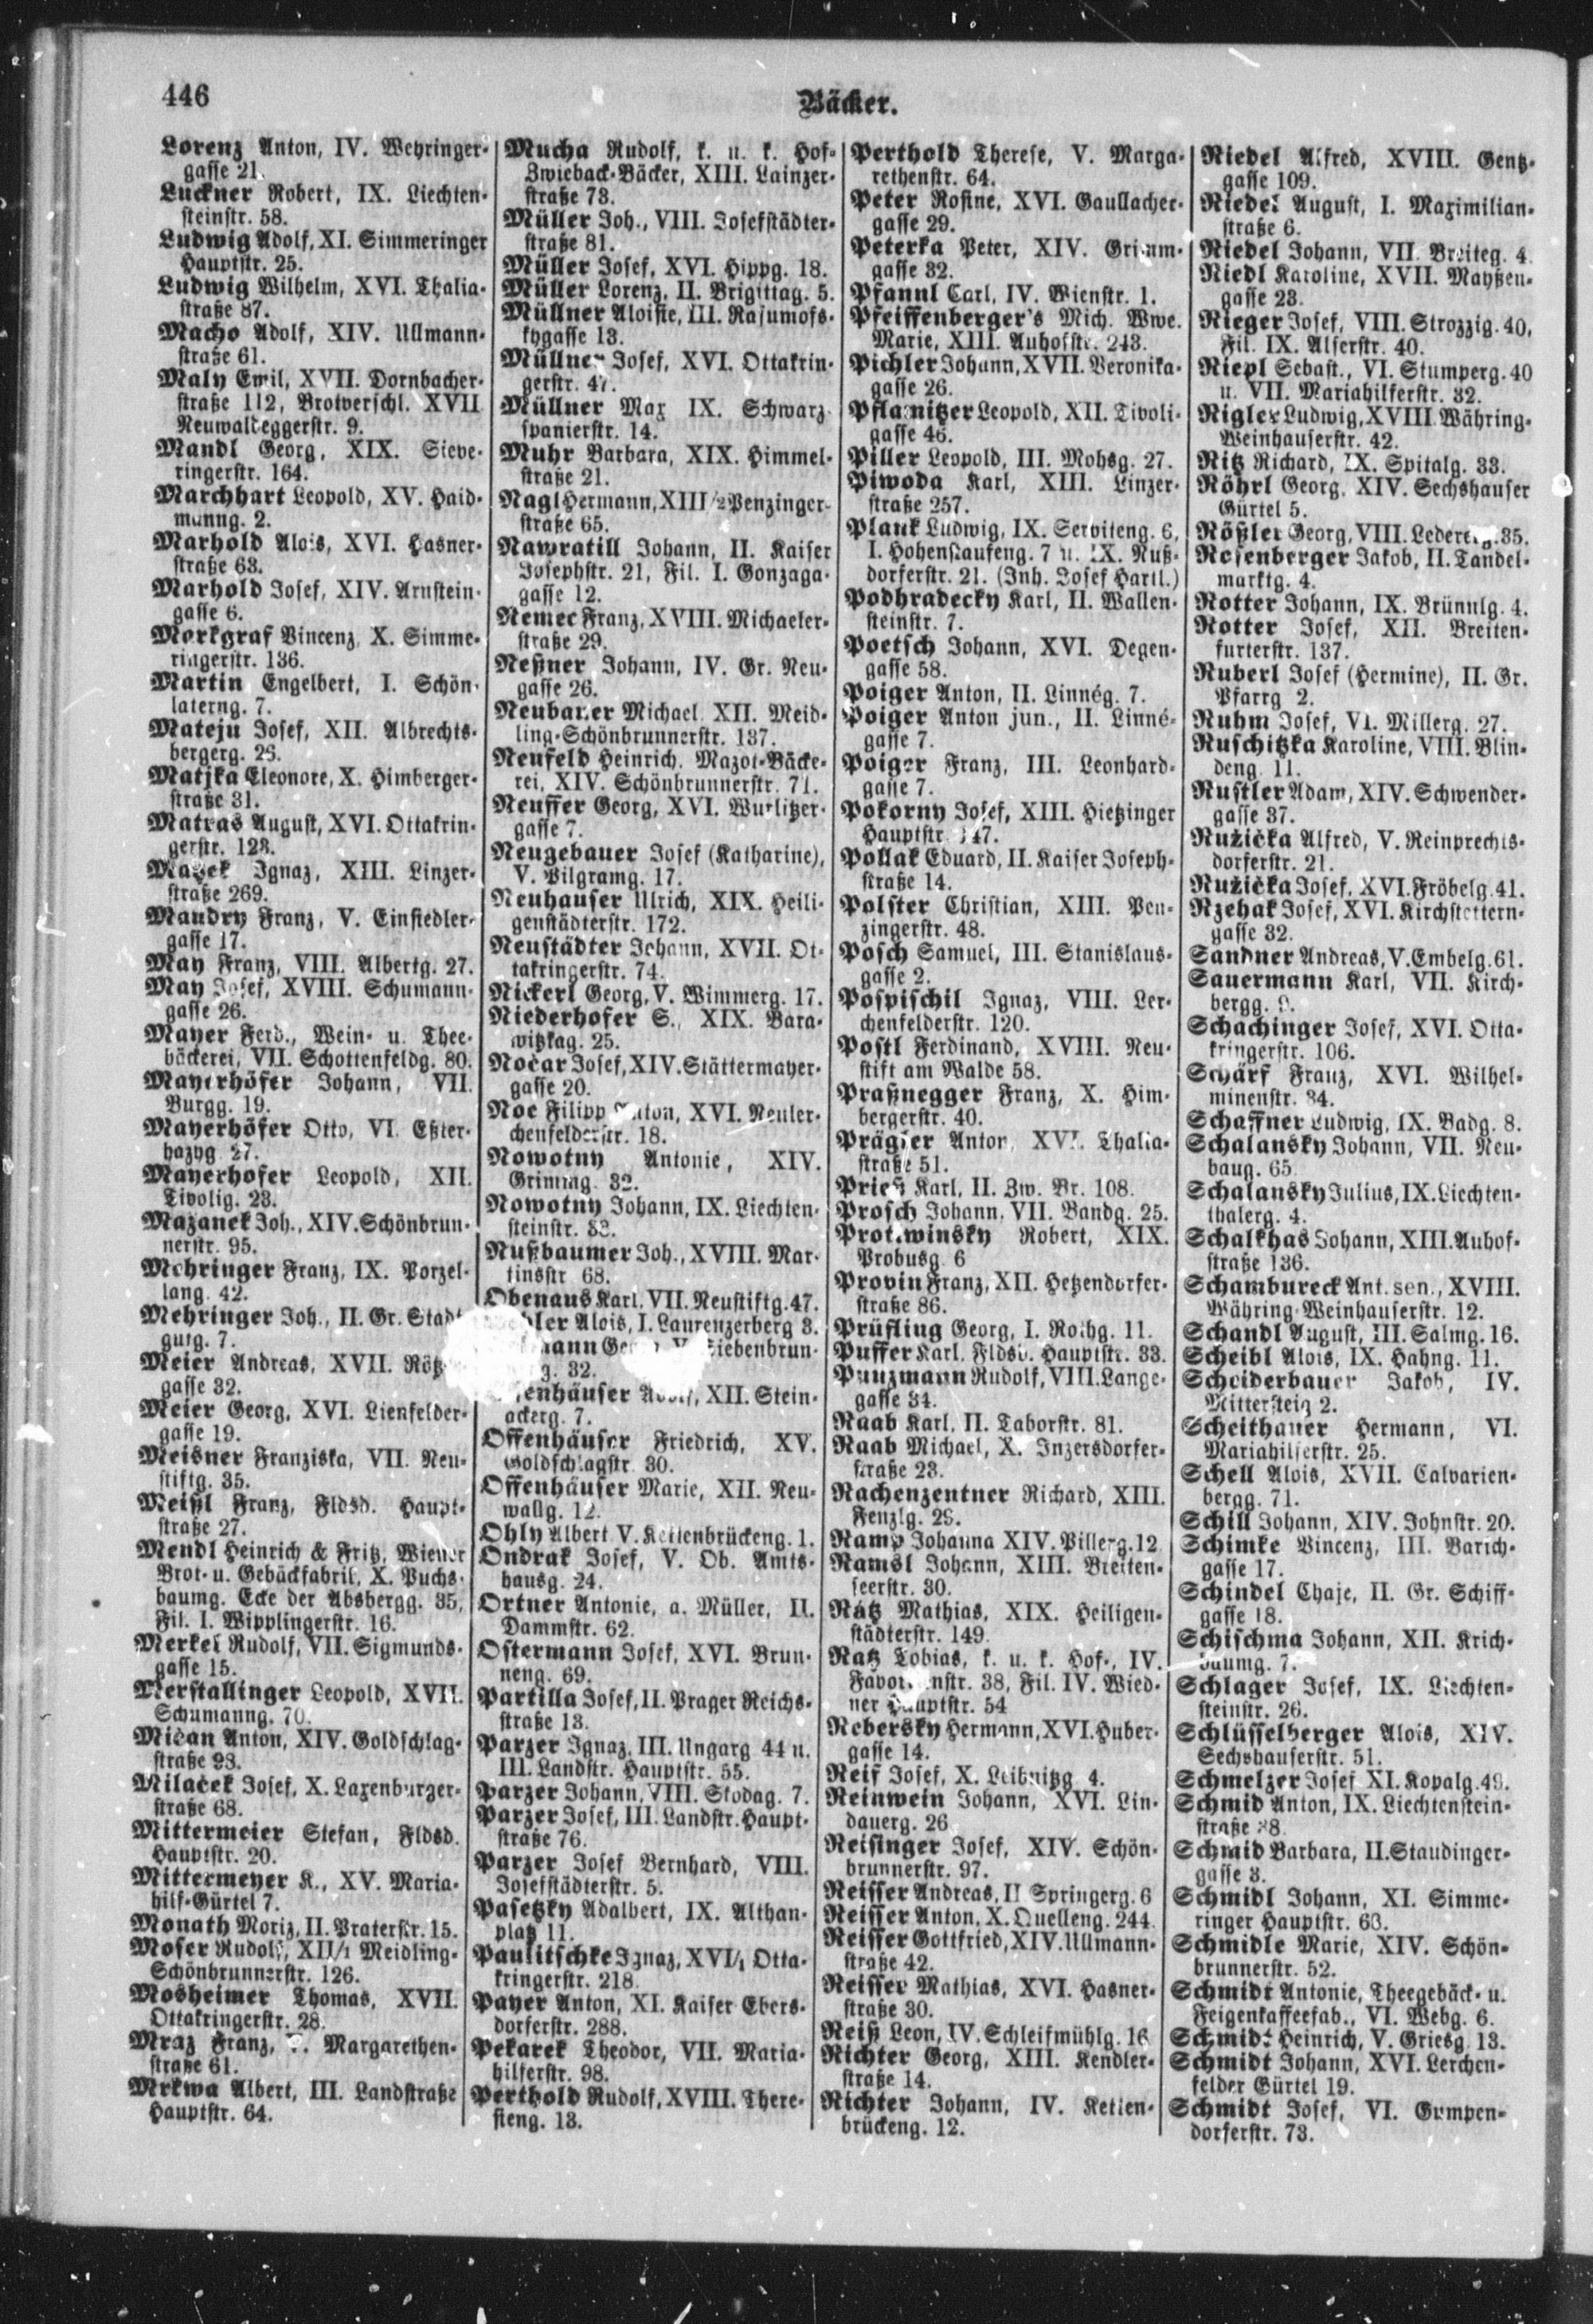 446
Bäcker.
Lorenz Anton, IV. Weyringer-
gasse 21.
Luckner Robert, IX. Liechten-
steinstr. 58.
Ludwig Adolf, XI. Simmeringer
Hauptstr. 25.
Ludwig Wilhelm, XVI. Thalia-
straße 87.
Macho Adolf, XIV. Ullmann-
straße 61.
Maly Emil, XVII. Dornbacher-
straße 112, Brotverschl. XVII
Neuwaldeggerstr. 9.
Mandl Georg, XIX. Sieve-
ringerstr. 164.
Marchhart Leopold, XV. Haid-
manng. 2.
Marhold Alois, XVI. Hasner-
straße 63.
Marhold Josef, XIV. Arnstein-
gasse 6.
Markgraf Vincenz, X. Simme-
ringerstr. 136.
Martin Engelbert, I. Schön-
laterng. 7.
Mateju Josef, XII. Albrechts-
bergerg.
Matjka Eleonore, X. Himberger-
straße 31.
Matras August, XVI. Ottakrin-
gerstr. 123.
Ignaz, XIII. Linzer-
straße 269.
Maudry Franz, V. Einsiedler-
gasse 17.
May Franz, VIII. Albertg. 27.
May Josef, XVIII. Schumann-
gasse 26.
Mayer Ferd., Wein- u. Thee-
bäckerei, VII. Schottenfeldg. 80.
Mayerhöfer Johann, VII.
Burgg. 19.
Mayerhöfer Otto, VI. Eßter-
hazyg. 27.
Mayerhofer Leopold, XII.
Tivolig. 23.
Mazanek Joh., XIV. Schönbrun-
nerstr. 95.
Mehringer Franz, IX. Porzel-
lang. 42.
Mehringer Joh., II. Gr. Stadt
gutg. 7.
Meier Andreas, XVII.
gasse 32.
Meier Georg, XVI. Lienfelder-
gasse 19.
Meisner Franziska, VII. Neu-
stiftg. 35.
Meißl Franz, Fldsd. Haupt-
straße 27.
Mendl Heinrich & Fritz, Wiener
Brot- u. Gebäckfabrik, X. Puchs-
baumg. Ecke der Absbergg. 35,
Fil. I. Wipplingerstr. 16.
Merkel Rudolf, VII. Sigmunds-
gasse 15.
Merstallinger Leopold, XVII.
Schumanng. 70.
Mičan Anton, XIV. Goldschlag-
straße 93.
Milaček Josef, X. Laxenburger-
straße 68.
Mittermeier Stefan, Fldsd.
Hauptstr. 20.
Mittermeyer K., XV. Maria-
hilf-Gürtel 7.
Monath Moriz, II. Praterstr. 15.
Moser Rudolf, XII/1 Meidling-
Schönbrunnerstr. 126.
Mosheimer Thomas, XVII.
Ottakringerstr. 28.
Mraz Franz, Margarethen-
straße 61.
Mrkwa Albert, III. Landstraße
Hauptstr. 64.
Mucha Rudolf, k. u. k. Hof-
Zwieback-Bäcker, XIII. Lainzer-
straße 73.
Müller Joh., VIII. Josefstädter-
straße 81.
Müller Josef, XVI. Hippg. 18.
Müller Lorenz, II. Brigittag. 5.
Müllner Aloisie, III. Rasumofs-
kygasse 13.
Müllner Josef, XVI. Ottakrin-
gerstr. 47.
Müllner Max IX. Schwarz-
spanierstr. 14.
Muhr Barbara, XIX. Himmel-
straße 21.
Nagl Hermann, XIII/2 Penzinger-
straße 65.
Nawratill Johann, II. Kaiser
Josephstr. 21, Fil. I. Gonzaga-
gasse 12.
Nemec Franz, XVIII. Michaeler-
straße 29.
Neßner Johann, IV. Gr. Neu-
gasse 26.
Neubauer Michael, XII. Meid-
ling-Schönbrunnerstr. 137.
Neufeld Heinrich, Mazot-Bäcke-
rei, XIV. Schönbrunnerstr. 71.
Neuffer Georg, XVI. Wurlitzer-
gasse 7.
Neugebauer Josef (Katharine),
V. Pilgramg. 17.
Neuhauser Ulrich, XIX. Heili-
genstädterstr. 172.
Neustädter Johann, XVII. Ot-
takringerstr. 74.
Nickerl Georg, V. Wimmerg. 17.
Niederhofer S., XIX. Bara-
witzkag. 25.
Nočar Josef, XIV. Stättermayer-
gasse 20.
Noe Filipp Anton, XVI. Neuler-
chenfelderstr. 18.
Nowotny Antonie, XIV.
Grimmg. 32.
Nowotny Johann, IX. Liechten-
steinstr.
Nußbaumer Joh., XVIII. Mar-
tinsstr 68.
Obenaus Karl, VII. Neustiftg. 47.
Alois, I. Laurenzerberg 3.
Siebenbrun-
g. 32.
Offenhäuser Adolf, XII. Stein-
ackerg. 7.
Offenhäuser Friedrich, XV.
Goldschlagstr. 30.
Offenhäuser Marie, XII. Neu-
wallg. 12.
Ohly Albert V. Kettenbrückeng. 1.
Ondrak Josef, V. Ob. Amts-
hausg. 24.
Ortner Antonie, a. Müller, II.
Dammstr. 62.
Ostermann Josef, XVI. Brun-
neng. 69.
Partilla Josef, II. Prager Reichs-
straße 13.
Parzer Ignaz, III. Ungarg 44 u.
III. Landstr. Hauptstr. 55.
Parzer Johann, VIII. Skodag. 7.
Parzer Josef, III. Landstr. Haupt-
straße 76.
Parzer Josef Bernhard, VIII.
Josefstädterstr. 5.
Pasetzky Adalbert, IX. Althan-
platz 11.
Paulitschke Ignaz, XVI/1 Otta-
kringerstr. 218.
Payer Anton, XI. Kaiser Ebers-
dorferstr. 288.
Pekarek Theodor, VII. Maria-
hilferstr. 98.
Perthold Rudolf, XVIII. There-
sieng. 13.
Perthold Therese, V. Marga-
rethenstr. 64.
Peter Rosine, XVI. Gaullacher-
gasse 29.
Peterka Peter, XIV. Grimm-
gasse 32.
Pfannl Carl, IV. Wienstr. 1.
Pfeiffenberger's Mich. Wwe.
Marie, XIII. Auhofstr. 243.
Pichler Johann, XVII. Veronika-
gasse 26.
Pflamitzer Leopold, XII. Tivoli-
gasse 46.
Piller Leopold, III. Mohsg. 27.
Piwoda Karl, XIII. Linzer-
straße 257.
Plank Ludwig, IX. Serviteng. 6,
I. Hohenstaufeng. 7 u. IX. Nuß-
dorferstr. 21. (Inh. Josef Hartl.)
Podhradecky Karl, II. Wallen-
steinstr. 7.
Poetsch Johann, XVI. Degen-
gasse 58.
Poiger Anton, II. Linnég. 7.
Poiger Anton jun., II. Linné-
gasse 7.
Poiger Franz, III. Leonhard-
gasse 7.
Pokorny Josef, XIII. Hietzinger
Hauptstr. 147.
Pollak Eduard, II. Kaiser Joseph-
straße 14.
Polster Christian, XIII. Pen-
zingerstr. 48.
Posch Samuel, III. Stanislaus-
gasse 2.
Pospischil Ignaz, VIII. Ler-
chenfelderstr. 120.
Postl Ferdinand, XVIII. Neu-
stift am Walde 58.
Praßnegger Franz, X. Him-
bergerstr. 40.
Prägler Anton, XVI. Thalia-
straße 51.
Prieß Karl, II. Zw. Br. 108.
Prosch Johann, VII. Bandg. 25.
Protiwinsky Robert, XIX.
Probusg. 6
Provin Franz, XII. Hetzendorfer-
straße 86.
Prüfling Georg, I. Rothg. 11.
Puffer Karl, Fldsd. Hauptstr. 33.
Punzmann Rudolf, VIII. Lange-
gasse 34.
Raab Karl, II. Taborstr. 81.
Raab Michael, X. Inzersdorfer-
straße 23.
Rachenzentner Richard, XIII.
Fenzlg.
Ramp Johanna XIV. Pillerg. 12
Ramsl Johann, XIII. Breiten-
seerstr. 30.
Rátz Mathias, XIX. Heiligen-
städterstr. 149.
Ratz Tobias, k. u. k. Hof-, IV.
Favoritenstr. 38, Fil. IV. Wied-
ner Hauptstr. 54
Rebersky Hermann, XVI. Huber-
gasse 14.
Reif Josef, X. Leibnitzg 4.
Reinwein Johann, XVI. Lin-
dauerg. 26
Reisinger Josef, XIV. Schön-
brunnerstr. 97.
Reisser Andreas, II Springerg. 6
Reisser Anton, X. Quelleng. 244.
Reisser Gottfried, XIV. Ullmann-
straße 42.
Reisser Mathias, XVI. Hasner-
straße 30.
Reiß Leon, IV. Schleifmühlg. 16
Richter Georg, XIII. Kendler-
straße 14.
Richter Johann, IV. Ketten-
brückeng. 12.
Riedel Alfred, XVIII. Gentz-
gasse 109.
Riedel August, I. Maximilian-
straße 6.
Riedel Johann, VII. Breiteg. 4.
Riedl Karoline, XVII. Mayßen-
gasse 23.
Rieger Josef, VIII. Strozzig. 40,
Fil. IX. Alserstr. 40.
Riepl Sebast., VI. Stumperg. 40
u. VII. Mariahilferstr. 32.
Rigler Ludwig, XVIII. Währing-
Weinhauserstr. 42.
Ritz Richard, IX. Spitalg. 33.
Röhrl Georg, XIV. Sechshauser
Gürtel 5.
Rößler Georg, VIII. Ledererg. 35.
Rosenberger Jakob, II. Tandel-
marktg. 4.
Rotter Johann, IX. Brünnlg. 4.
Rotter Josef, XII. Breiten-
furterstr. 137.
Ruberl Josef (Hermine), II. Gr.
Pfarrg 2.
Ruhm Josef, VI. Millerg. 27.
Ruschitzka Karoline, VIII. Blin-
deng. 11.
Rustler Adam, XIV. Schwender-
gasse 37.
Ružička Alfred, V. Reinprechts-
dorferstr. 21.
Ružička Josef, XVI. Fröbelg. 41.
Rzehak Josef, XVI. Kirchstettern-
gasse 32.
Sandner Andreas, V. Embelg. 61.
Sauermann Karl, VII. Kirch-
bergg.
Schachinger Josef, XVI. Otta-
kringerstr. 106.
Schärf Franz, XVI. Wilhel-
minenstr. 34.
Schaffner Ludwig, IX. Badg. 8.
Schalansky Johann, VII. Neu-
baug. 65.
Schalansky Julius, IX. Liechten-
thalerg. 4.
Schalkhas Johann, XIII. Auhof-
straße 136.
Schambureck Ant. sen., XVIII.
Währing-Weinhauserstr. 12.
Schandl August, III. Salmg. 16.
Scheibl Alois, IX. Hahng. 11.
Scheiderbauer Jakob, IV.
Mittersteig 2.
Scheithauer Hermann, VI.
Mariahilferstr. 25.
Schell Alois, XVII. Calvarien-
bergg. 71.
Schill Johann, XIV. Johnstr. 20.
Schimke Vincenz, III. Barich-
gasse 17.
Schindel Chaje, II. Gr. Schiff-
gasse 18.
Schischma Johann, XII. Krich-
baumg. 7.
Schlager Josef, IX. Liechten-
steinstr. 26.
Schlüsselberger Alois, XIV.
Sechshauserstr. 51.
Schmelzer Josef XI. Kopalg. 49.
Schmid Anton, IX. Liechtenstein-
straße
Schmid Barbara, II. Staudinger-
gasse 3.
Schmidl Johann, XI. Simme-
ringer Hauptstr. 63.
Schmidle Marie, XIV. Schön-
brunnerstr. 52.
Schmidt Antonie, Theegebäck- u.
Feigenkaffeefab., VI. Webg. 6.
Schmidt Heinrich, V. Griesg. 13.
Schmidt Johann, XVI. Lerchen-
felder Gürtel 19.
Schmidt Josef, VI. Gumpen-
dorferstr. 73.